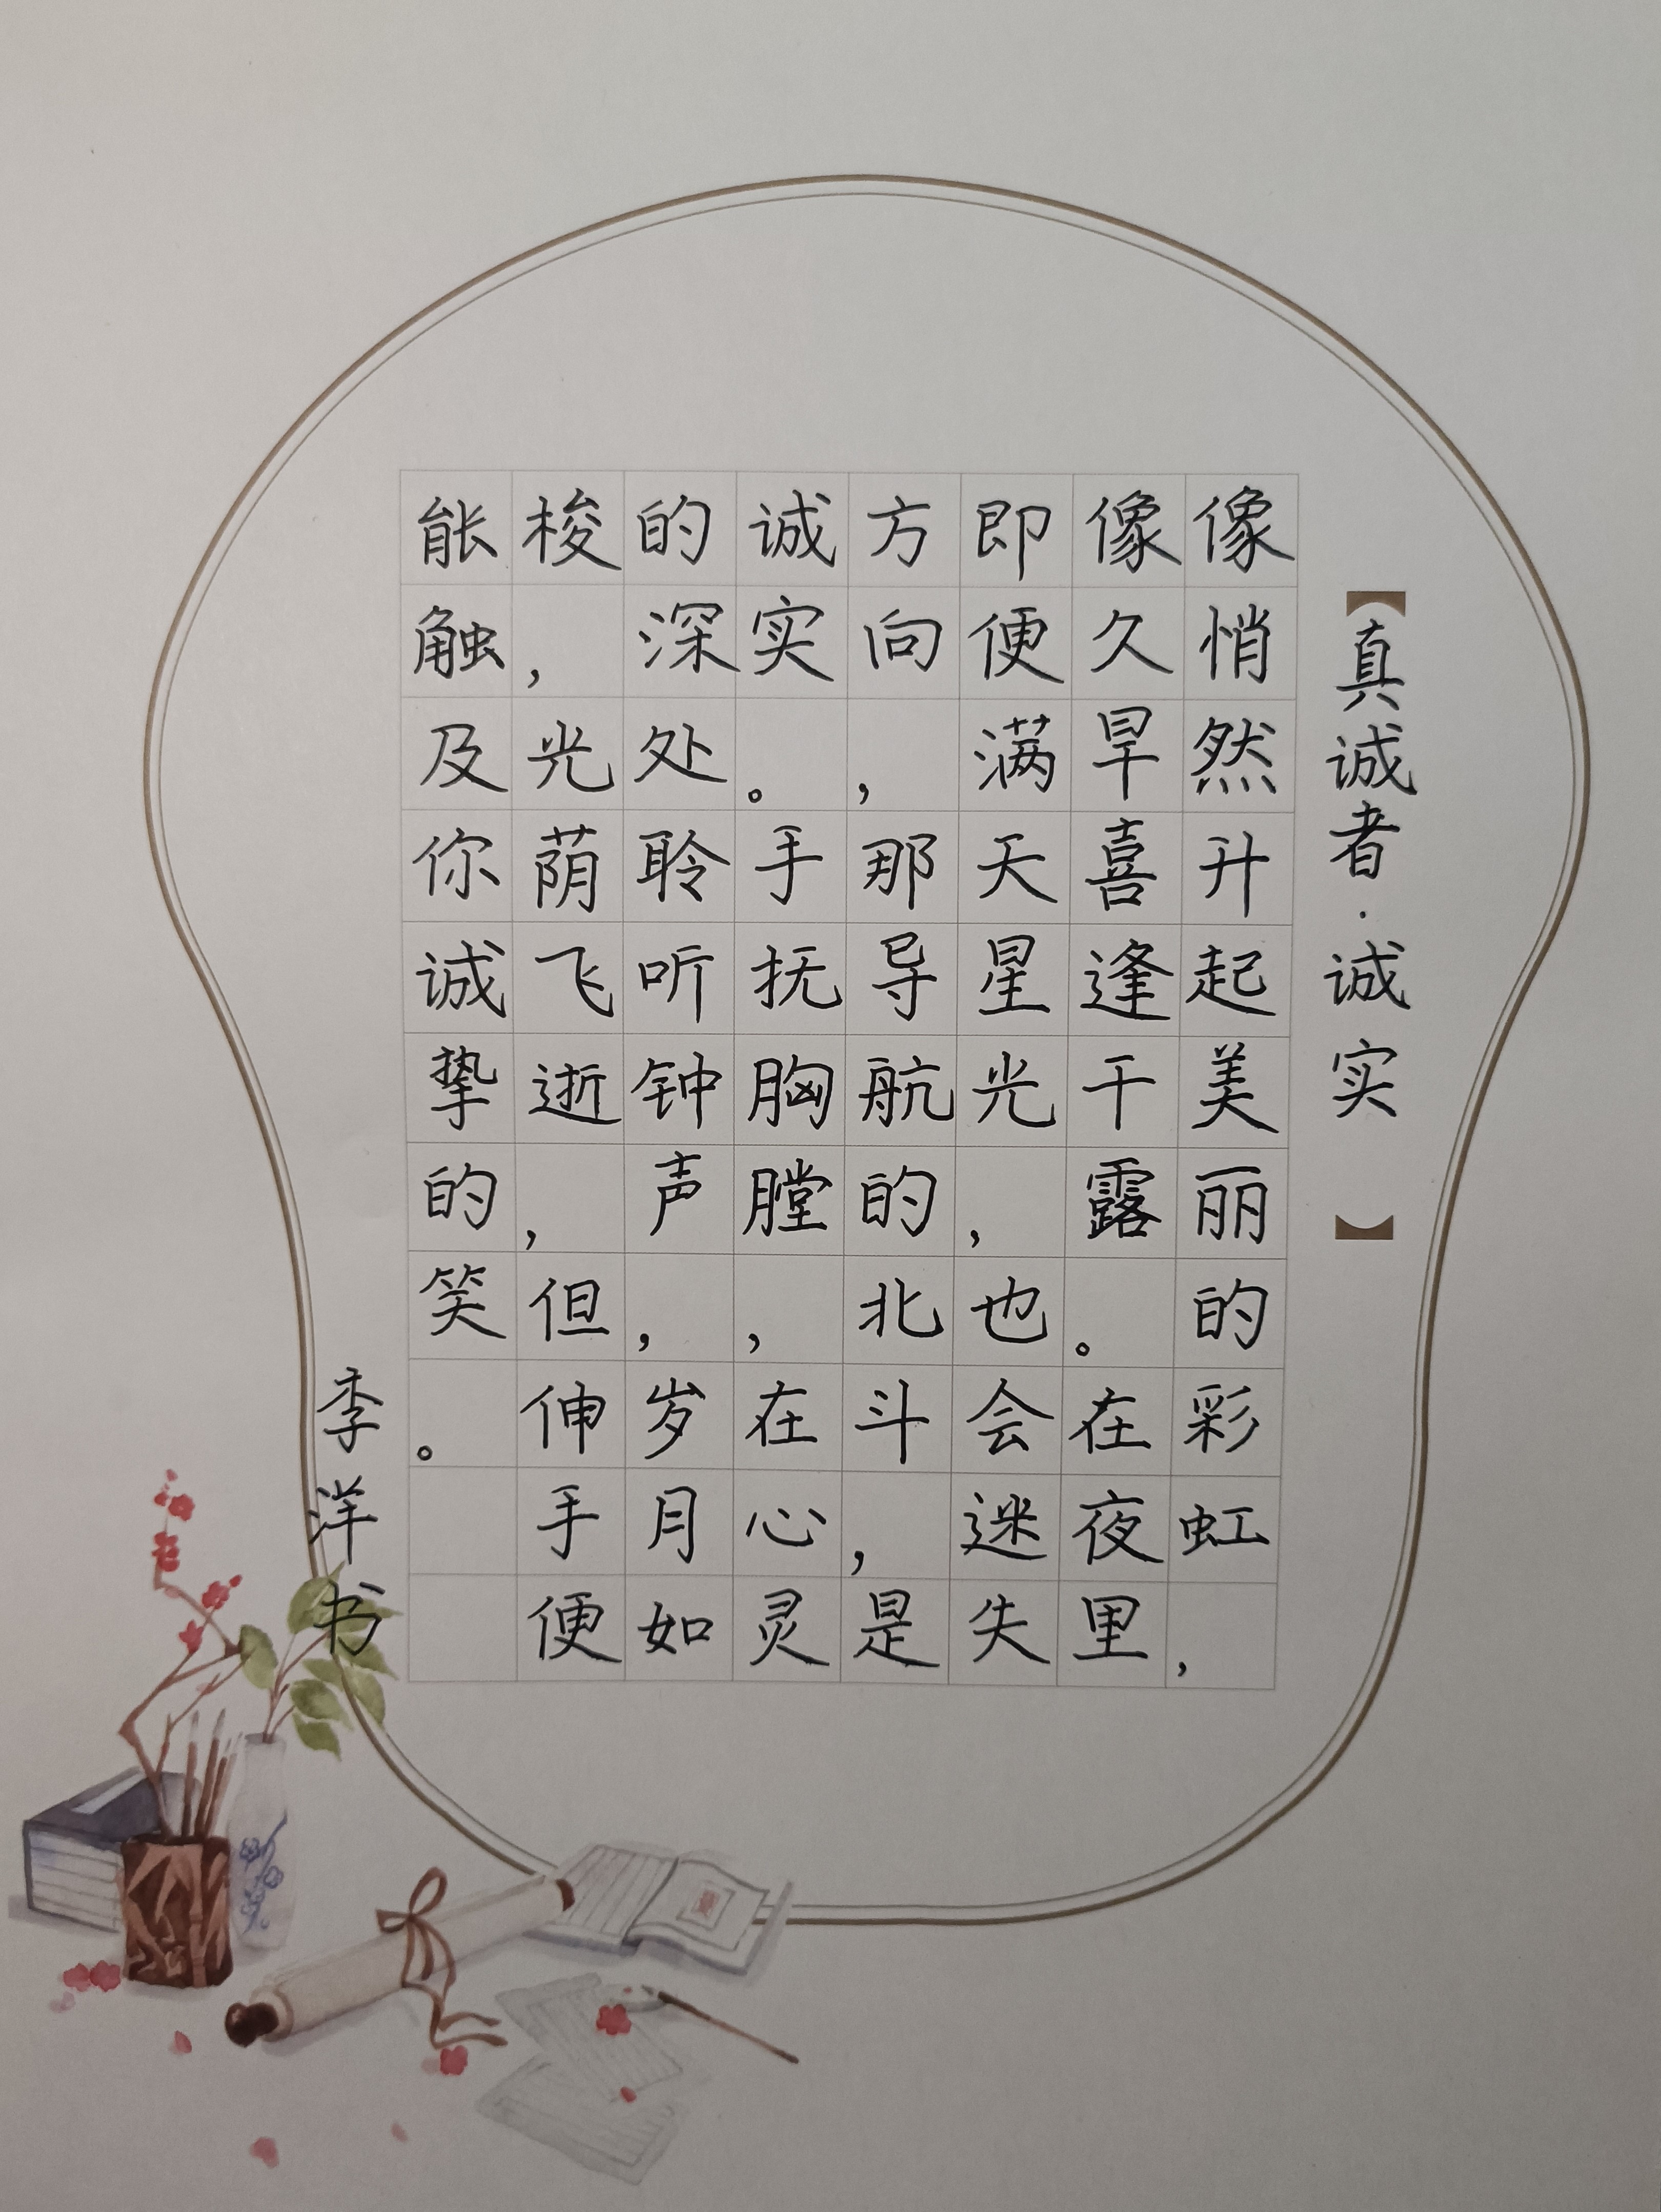 【真诚者·诚实】
像悄然升起美丽的彩虹，
像久旱喜逢干露。在夜里
即便满天星光，也会迷失
方向，那导航的北斗，是
诚实。手抚胸膛，在心灵
的深处聆听钟声，岁月如
梭，光荫飞逝，但伸手便
能触及你诚挚的笑。
李洋书